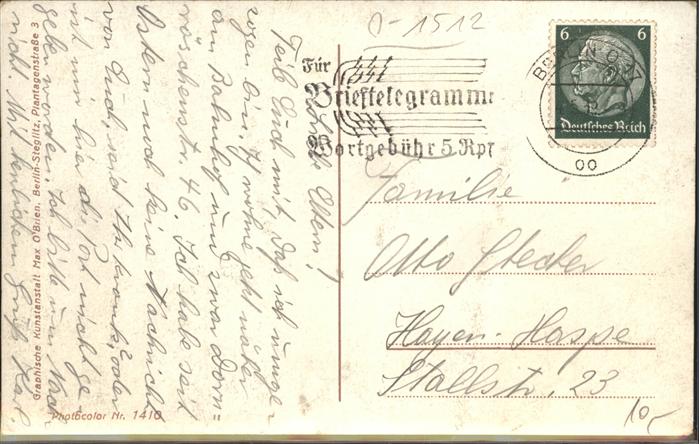 O-1512
Für
Brieftelegramme
Wortgebühr 5 Rpf
6 6
Deutsches Reich
Liebe Eltern!
Teile Euch mit, daß ich umge-
zogen bin. Ich wohne jetzt näher
am Bahnhof und zwar Dorn-
röschenstr. 46. Ich habe seit
Ostern noch keine Nachricht
von Euch, seid Ihr krank, oder
ist mir hier die Post nicht ge-
geben worden. Ich bitte um Nach-
richt. Mit herzlichen Gruß Karl
Familie
Otto Stecker
Hagen-Haspe
Stallstr. 23
10,-
Graphische Kunstanstalt Max O'Brien, Berlin-Steglitz, Plantagenstraße 3
Photocolor Nr. 1410